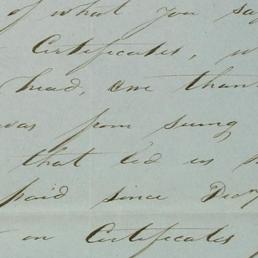 of what you say
Certificates, w
head, one than
was from seeing
that led us
paid since Dec
on Certificates